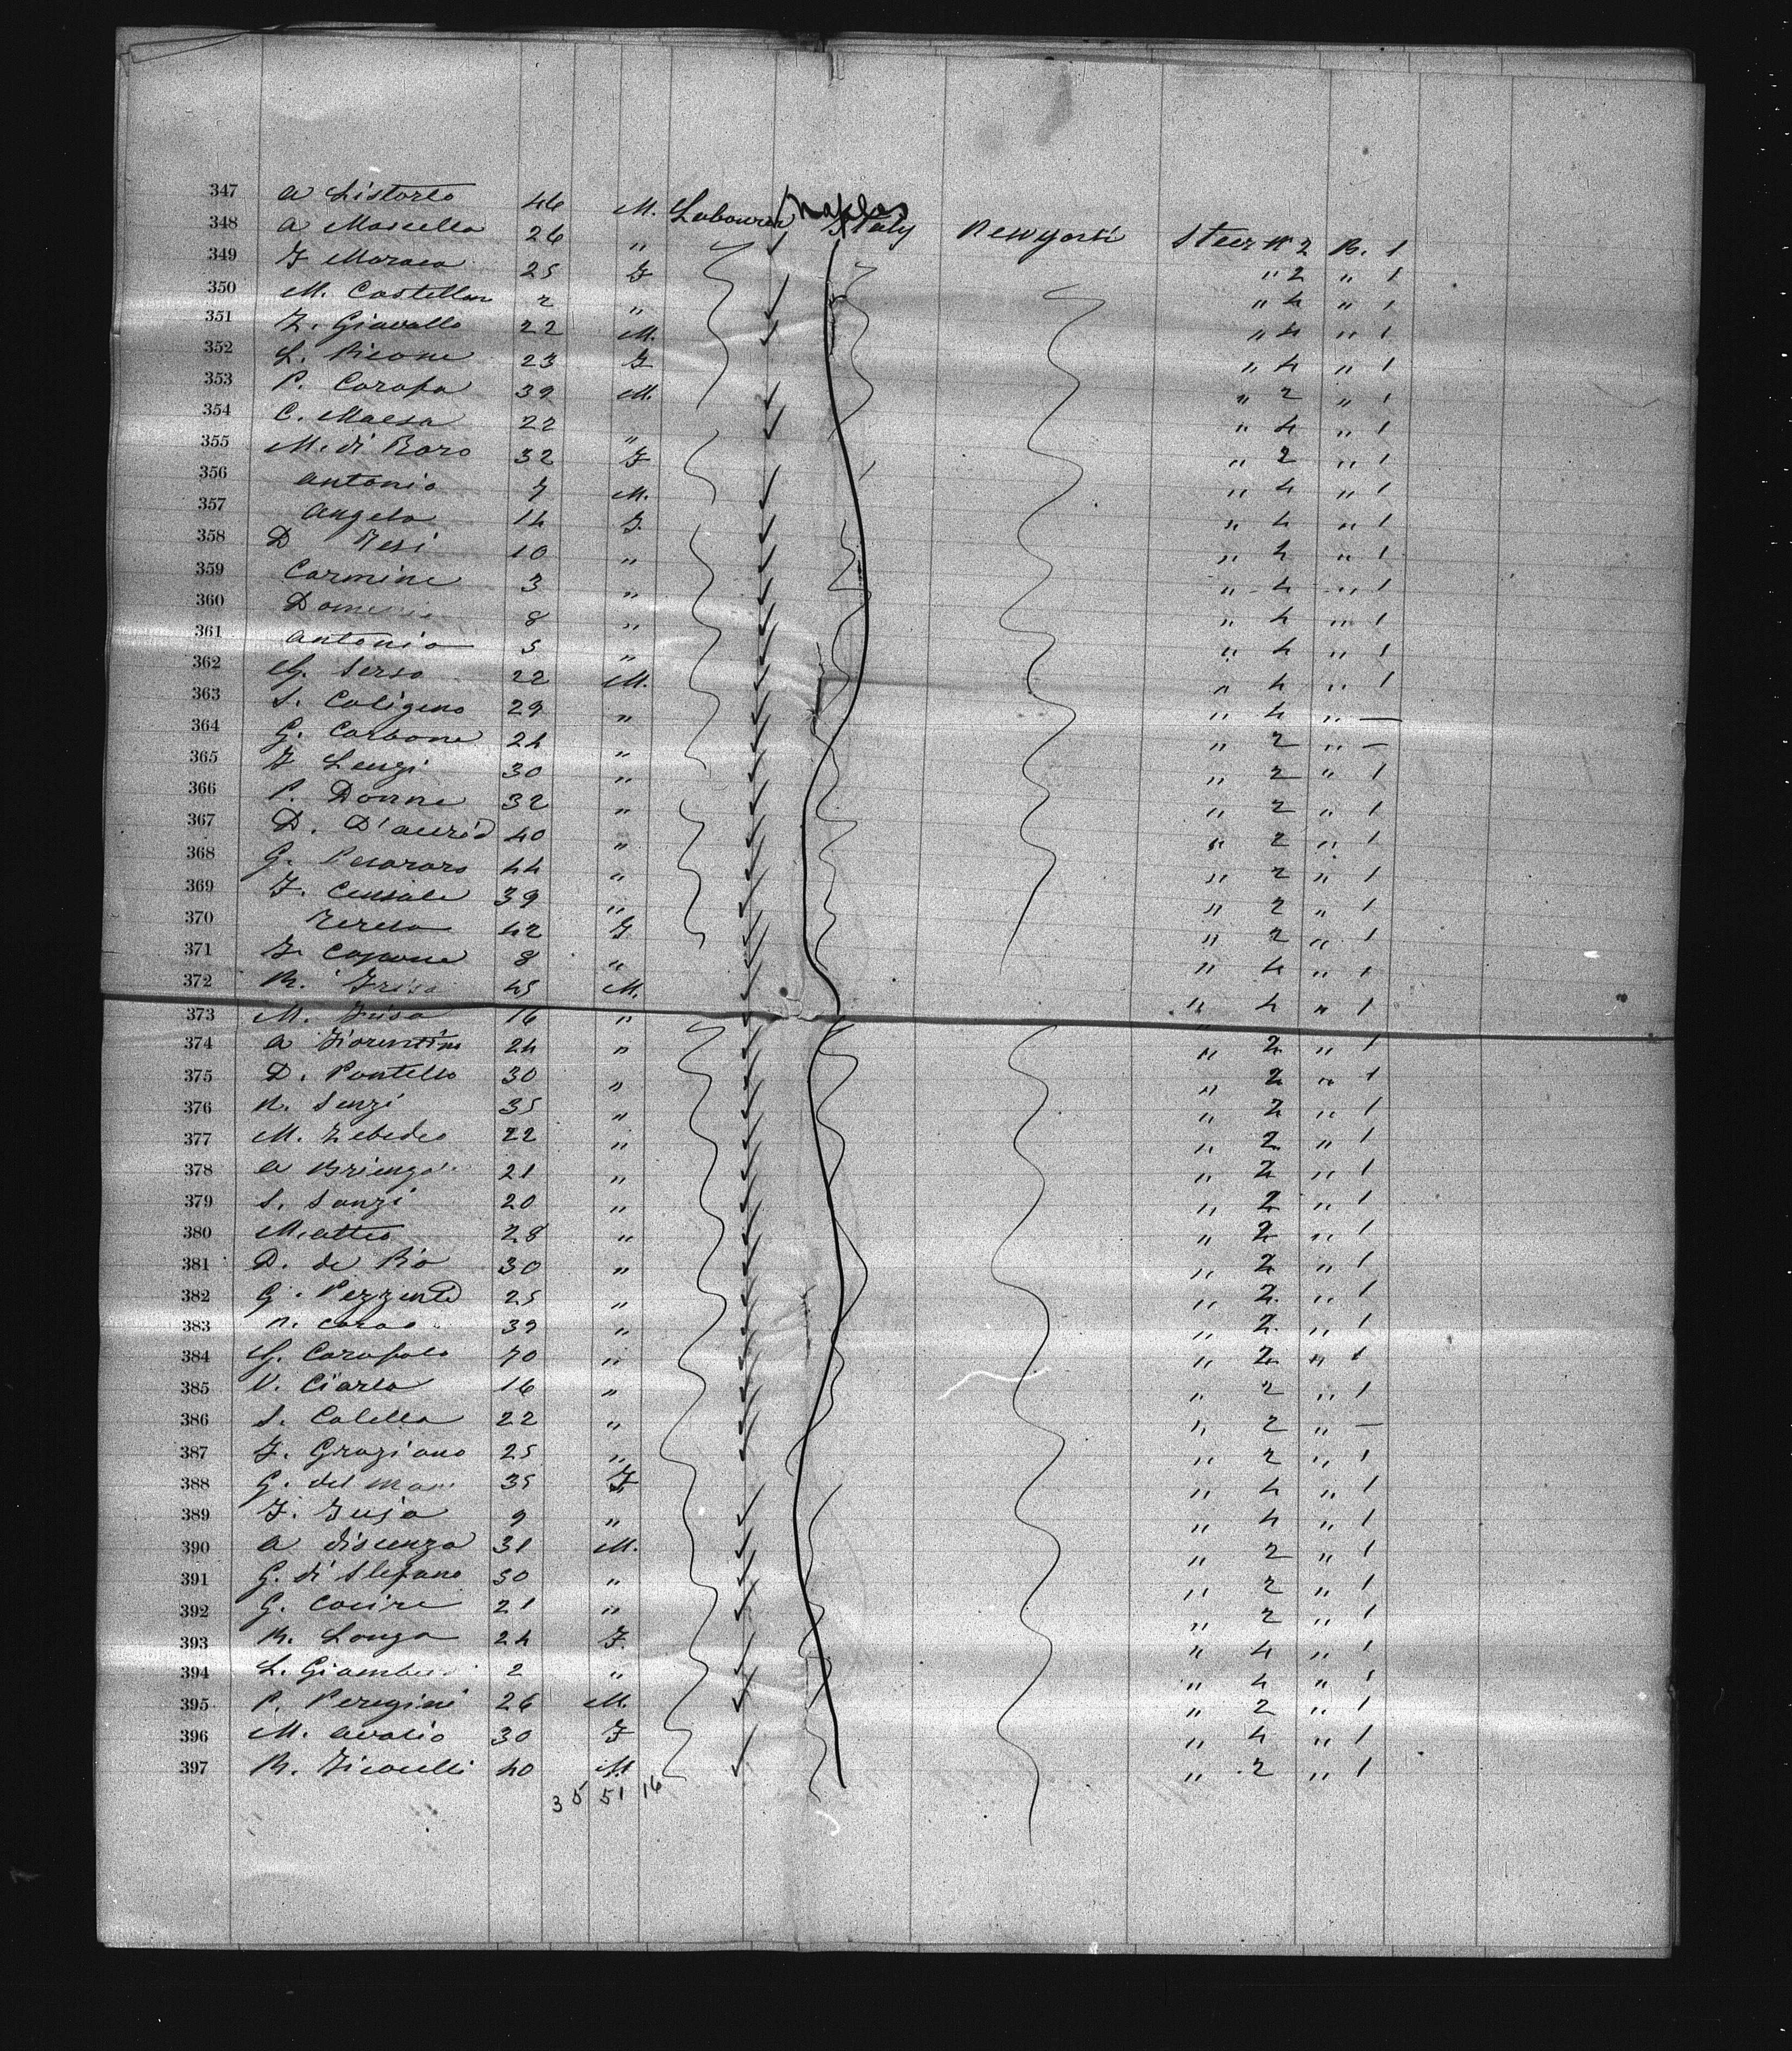 347 A Listorto 46 M. Labourer Naples Italy New York Steer No 2 B. 1
348 A Mascella 26 " " 2 " 1
349 F Moraca 25 F " 4 " 1
350 M. Castellan 2 " " 4 " 1
351 Z. Giavallo 22 M. " 4 " 1
352 L. Picone 23 F " 2 " 1
353 P. Carafa 39 M. " 4 " 1
354 C. Maesa 22 " " 2 " 1
355 M. di Baro 32 F " 4 " 1
356 Antonio 7 M. " 4 " 1
357 Angela 14 F. " 4 " 1
358 D 10 " " 4 " 1
359 Carmine 3 " " 4 " 1
360 8 " " 4 " 1
361 Antonia 5 " " 4 " 1
362 G. Serso 22 M. " 4 " —
363 S. Caligeno 29 " " 2 " —
364 G. Carbone 24 " " 2 " 1
365 F Lenzi 30 " " 2 " 1
366 P. Donne 32 " " 2 " 1
367 D. D'auria 40 " " 2 " 1
368 G. Pecoraro 44 " " 2 " 1
369 F. Censale 39 " " 2 " 1
370 Teresa 42 F. " 4 " 1
371 F. Capone 8 " " 4 " 1
372 R. 45 M. "
373 M. 16 " " 2 " 1
374 A Fiorentino 24 " " 2 " 1
375 D. Pontello 30 " " 2 " 1
376 N. Senzi 35 " " 2 " 1
377 M. Zebedeo 22 " " 2 " 1
378 A Brienza 21 " " 2 " 1
379 S. Sanzi 20 " " 2 " 1
380 Matteo 28 " " 2 " 1
381 D. de Rio 30 " " 2 " 1
382 G. Pezzente 25 " " 2 " 1
383 N. 39 " " 2 " 1
384 G. Carofalo 70 " " 2 " 1
385 V. Ciarla 16 " " 2 " —
386 S. Calella 22 " " 2 " 1
387 F. Graziano 25 " " 4 " 1
388 G. del 35 F " 4 " 1
389 F. 9 " " 2 " 1
390 A discenza 31 M. " 2 " 1
391 G. di Stefano 50 " " 2 " 1
392 G. Cocire 21 " " 4 " 1
393 R. Longa 24 F. " 4 " 1
394 L. 2 " " 2 " 1
395 P. Peregini 26 M. " 4 " 1
396 M. Avolio 30 F " 2 " 1
397 R. Ficocelli 40 M
35 51 16